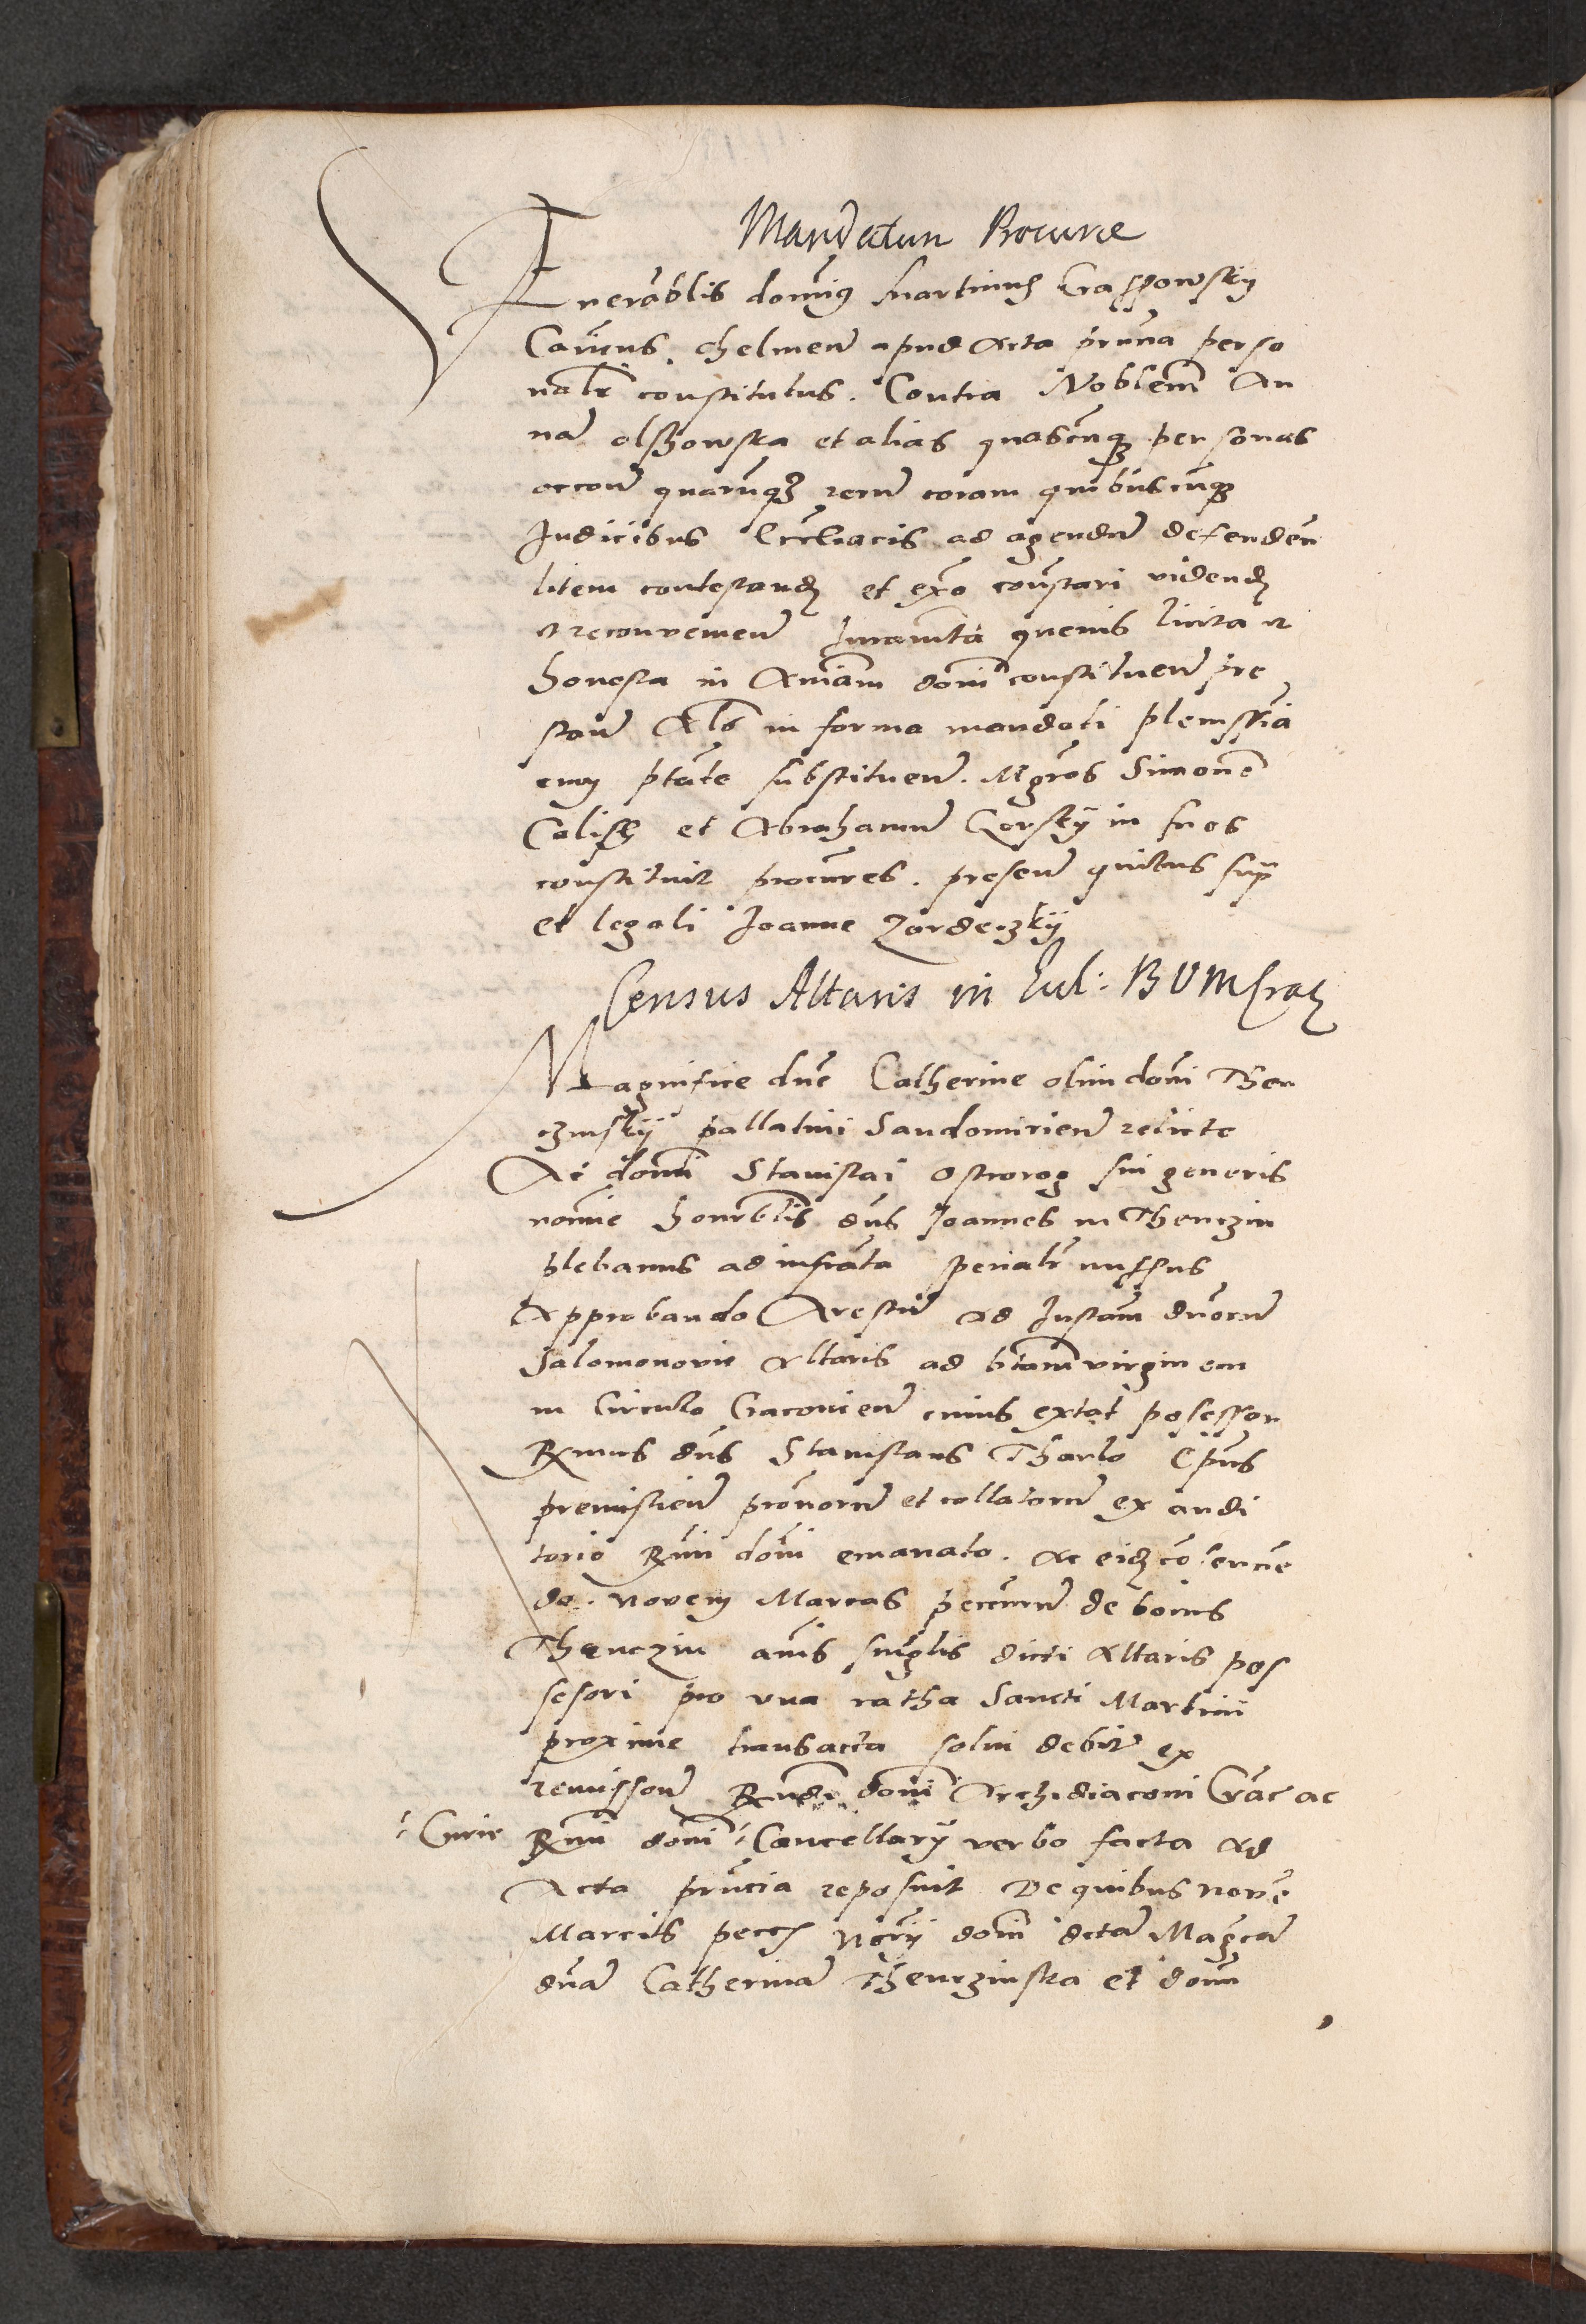 Mandatum Procurae
Venerablis dominus Martinus Crassowsky
Canicus chelmen apud Acta prnna perso
nalr constitutus. Contra Noblem An
nam olschowska et alias quascunq personas
occone quarumq rerum coram quibuscunq
Judicibus Eccliacis ad agendum defenden
litem contestand et exo constari videnda
et reconvenien Juramta quevis licita et
honesta in Aniam domi constituen pre
stan Als in forma mandati plenissia
cum ptate substituen. Mgros Simonem
Calisch et Abrahamum Gorsky in suos
constituit procures. presen quibus sup
et legali Joanne Zardeczky
Census Altaris in Eccl: BVM Crac
Magnifice dne Catherine olim domi Then
czinsky pallatini Sandomirien relicte
Ac domi Stanislai Ostrorog sui generis
nomine honorblis dns Joannes in Thenczin
plebanus ad infrata spenialr missus
Approbando Arestum ad Instam dnorum
Salomonovie Altaris ad btam virginem
in Circulo Cracovien cuius extat posessor
Rxmus dns Stanislaus Tharlo Epus
premislien pronorum et collatorum ex audi
torio Rmi domi emanato. Ac eidem
do. novem Marcas peccuniarum de bonis
Thenczin anis singlis dicti Altaris pos
sesori pro una ratha Sancti Martini
proxime transacta solvi debitum ex
remissione Rxndi domi Archidiaconi Crac ac
Curie Rmi domi Cancellarij verbo facta ad
Acta prncia reposuit De quibus novem
Marcis pecc domi dctam Magcam
dnam Catherinam Thenczinska et domum